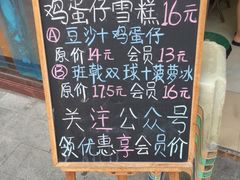 鸡蛋仔雪糕16元
Ⓐ豆沙+鸡蛋仔
原价14元 会员13元
Ⓑ班戟双球+菠萝冰
原价17.5元 会员16元
关注公众号
领优惠享会员价